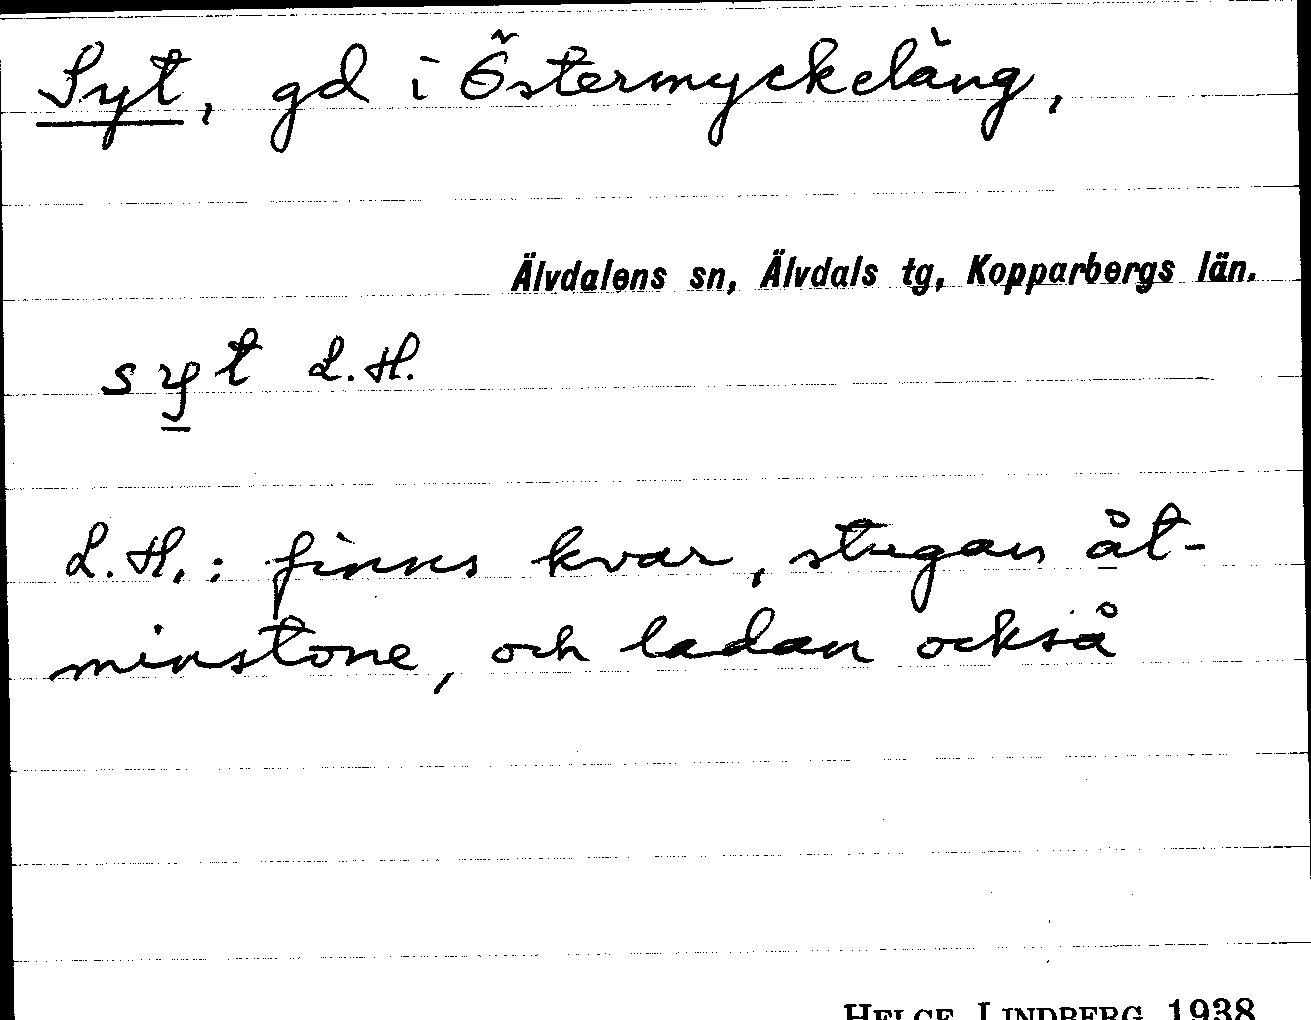 Syt, gd i Östermyckeläng,
Älvdalens sn, Älvdals tg, Kopparbergs län.
syt L.H.
L.H.: finns kvar, stugan åt-
minstone, och ladan också
HELGE LINDBERG 1938